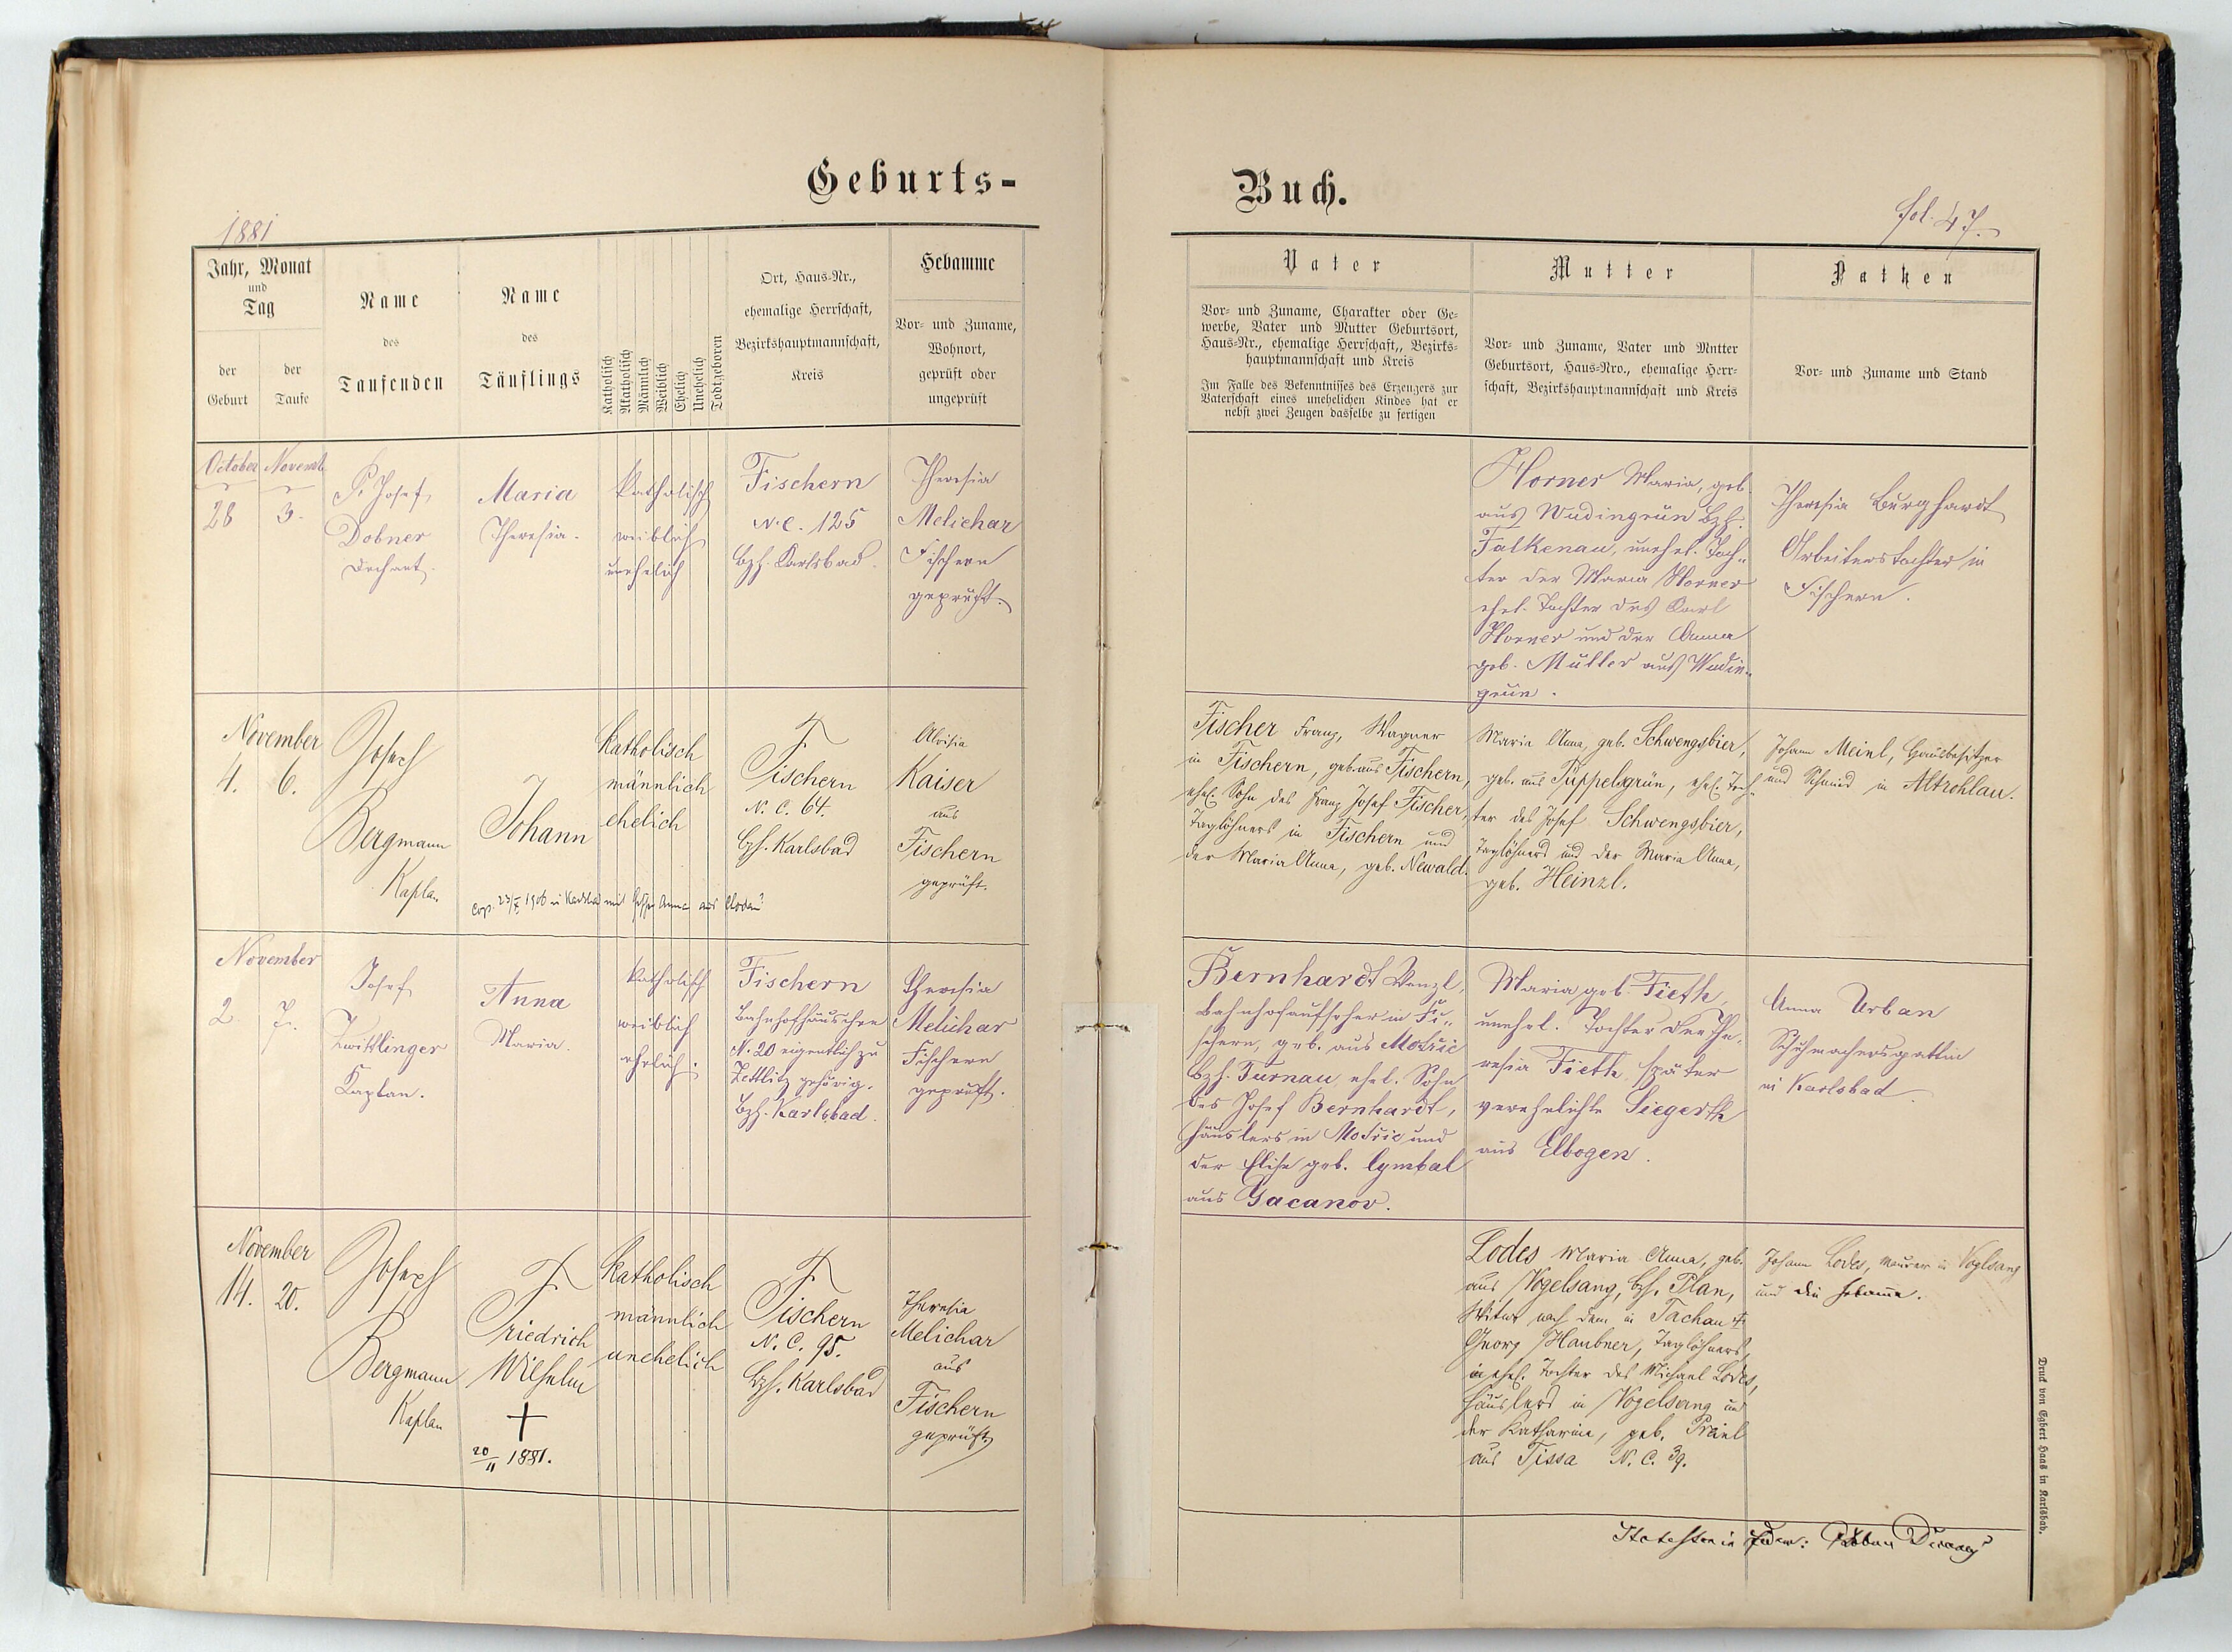 Geburts-
Buch.
1881
fol. 47.
Jahr, Monat
und
Tag
der
Geburt
der
Taufe
Name
des
Taufenden
Name
des
Täuflings
Katholisch
Akatholisch
Männlich
Weiblich
Ehelich
Unehelich
Todtgeboren
Ort, Haus-Nr.,
ehemalige Herrschaft,
Bezirkshauptmannschaft,
Kreis
Hebamme
Vor- und Zuname,
Wohnort,
geprüft oder
ungeprüft
Vater
Vor- und Zuname, Charakter oder Ge-
werbe, Vater und Mutter Geburtsort,
Haus-Nr., ehemalige Herrschaft,, Bezirks-
hauptmannschaft und Kreis
Im Falle des Bekenntnisses des Erzeugers zur
Vaterschaft eines unehelichen Kindes hat er
nebst zwei Zeugen dasselbe zu fertigen
Mutter
Vor- und Zuname, Vater und Mntter
Geburtsort, Haus-Nro., ehemalige Herr-
schaft, Bezirkshauptmannschaft und Kreis
Pathen
Vor- und Zuname und Stand
October
28
Novemb.
3.
P. Josef
Dobner
Dechant.
Maria
Theresia.
katholisch
weiblich
unehelich
Fischern
N.C. 125
Bzh. Karlsbad.
Theresia
Melichar
Fischern
geprüft.
Horner Maria, geb.
aus Wudingrün Bzh.
Falkenau, unehel. Toch-
ter der Maria Horner
ehel. Tochter des Karl
Horner und der Anna
geb. Müller aus Wudin-
grün.
Theresia Burghardt
Arbeiterstochter in
Fischern.
November
4. 6.
Josef
Bergmann
Kaplan
Johann
cop. 1906 in Karlsbad mit Anna aus
katholisch
männlich
ehelich
Fischern
N. C. 64.
Bzh. Karlsbad
Aloisia
Kaiser
aus
Fischern
geprüft.
Fischer Franz, Wagner
in Fischern, geb. aus Fischern,
ehel. Sohn des Franz Josef Fischer,
Taglöhners in Fischern und
der Maria Anna, geb. Newald.
Maria Anna, geb. Schwengsbier,
geb. aus Tüppelsgrün, ehel. Toch-
ter des Josef Schwengsbier,
Taglöhners und der Maria Anna,
geb. Heinzl.
Johann Meinl, Hausbesitzer
und Schmied in Altrohlau.
November
2. 7.
Josef
Zwittlinger
Kaplan.
Anna
Maria.
katholisch
weiblich
ehelich.
Fischern
Bahnhofhäuschen
N. 20 eigentlich zu
Zettlitz gehörig.
Bzh. Karlsbad.
Theresia
Melichar
Fischern
geprüft.
Bernhardt Wenzl,
Bahnhofaufseher in Fi-
schern, geb. aus
Bzh. Turnau, ehel. Sohn
des Josef Bernhardt,
Häuslers in und
der Elise geb. Cymbal
aus Gacanov.
Maria geb. Fieth,
unehel. Tochter der The-
resia Fieth, später
verehelichte Siegerth
aus Elbogen.
Anna Urban
Schuhmachersgattin
in Karlsbad.
November
14. 20.
Josef
Bergmann
Kaplan
Friedrich
Wilhelm
†
20/11 1881.
katholisch
männlich
unehelich
Fischern
N. C. 95.
Bzh. Karlsbad
Theresia
Melichar
aus
Fischern
geprüft
Lodes Maria Anna, geb.
aus Vogelsang, Bzh. Plan,
Witwe nach dem in Tachau †
Georg Haubner, Taglöhners,
ehel. Tochter des Michael Lodes,
Häuslers in Vogelsang und
der Katharina, geb.
aus Tissa N. C. 39.
Johann Lodes, Maurer in Voglsang
und die Hebamme.
Druck von Egbert Haas in Karlsbad.